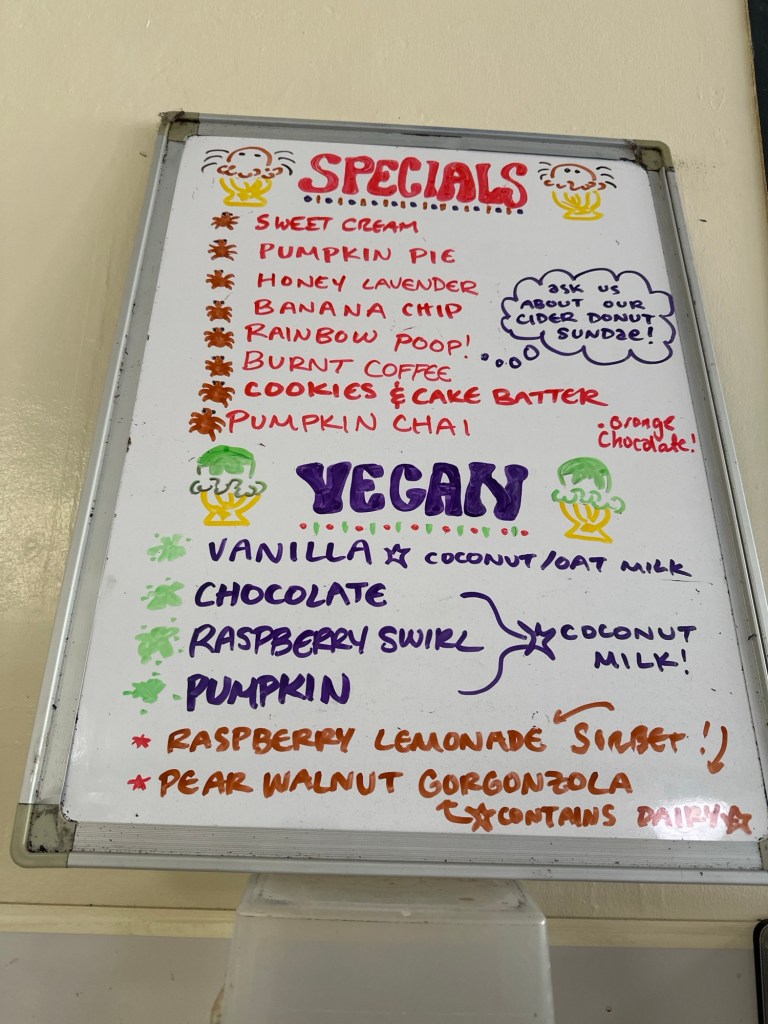 SPECIALS
SWEET CREAM
PUMPKIN PIE
HONEY LAVENDER
BANANA CHIP
RAINBOW POOP!
BURNT COFFEE
COOKIES & CAKE BATTER
PUMPKIN CHAI
ASK US
ABOUT OUR
CIDER DONUT
SUNDAE!
•Orange
Chocolate!
VEGAN
VANILLA ☆ COCONUT/OAT MILK
CHOCOLATE
RASPBERRY SWIRL
PUMPKIN
☆ COCONUT
MILK!
* RASPBERRY LEMONADE SIRBET !
* PEAR WALNUT GORGONZOLA
☆ CONTAINS DAIRY ☆